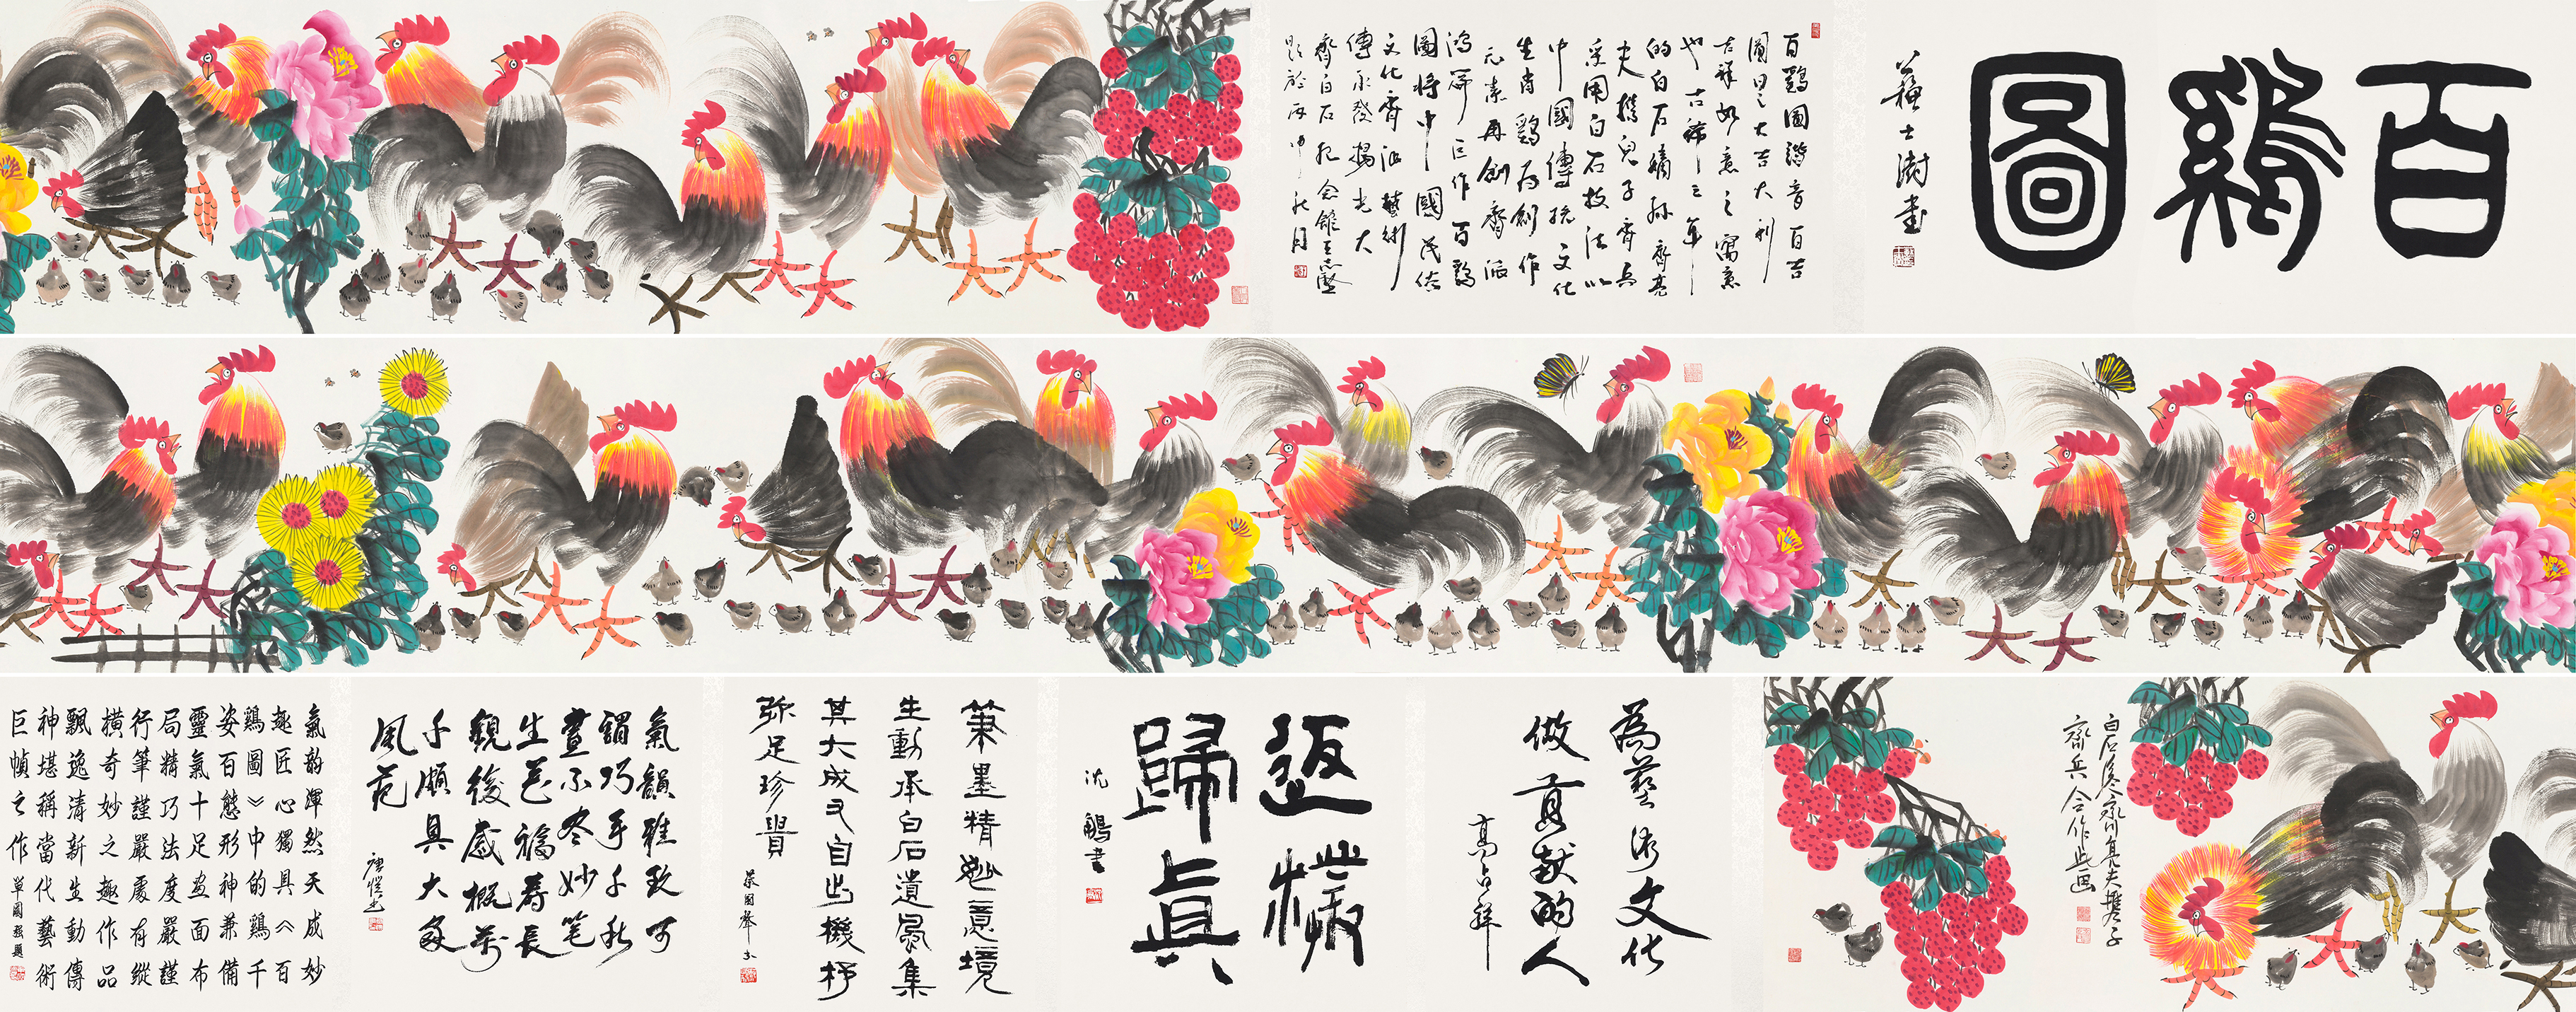 百鷄圖
蘇士澍書
百鷄圖諧音百吉
圖 之大吉大利
吉祥如意之寓意
也古稀之年
的白石嫡孫齊亮
夫携兒子齊兵
采用白石技法以
中國傳統文化
生肖鷄為創作
元素再創齊派
鴻篇巨作百鷄
圖將中國民俗
文化齊派藝術
傳承發揚光大
齊白石紀念館王志堅
題於丙申秋月
白石 夫攜子
齊兵合作此画
為藝術文化
做貢獻的人
高占祥
返樸
歸眞
沈鵬書
筆墨精妙意境
生動承白石遺風集
其大成又自出機杼
弥足珍貴
蔡國聲书
氣韻雅致可
謂巧手千秋
畫不尽妙笔
生花福壽長
觀後感概萬
千頗具大家
風范
氣韵渾然天成妙
趣匠心獨具《百
鷄圖》中的鷄千
姿百態形神兼備
靈氣十足畫面布
局精巧法度嚴謹
行筆謹嚴處有縱
橫奇妙之趣作品
飄逸清新生動傳
神堪稱當代藝術
巨幀之作 單國強題